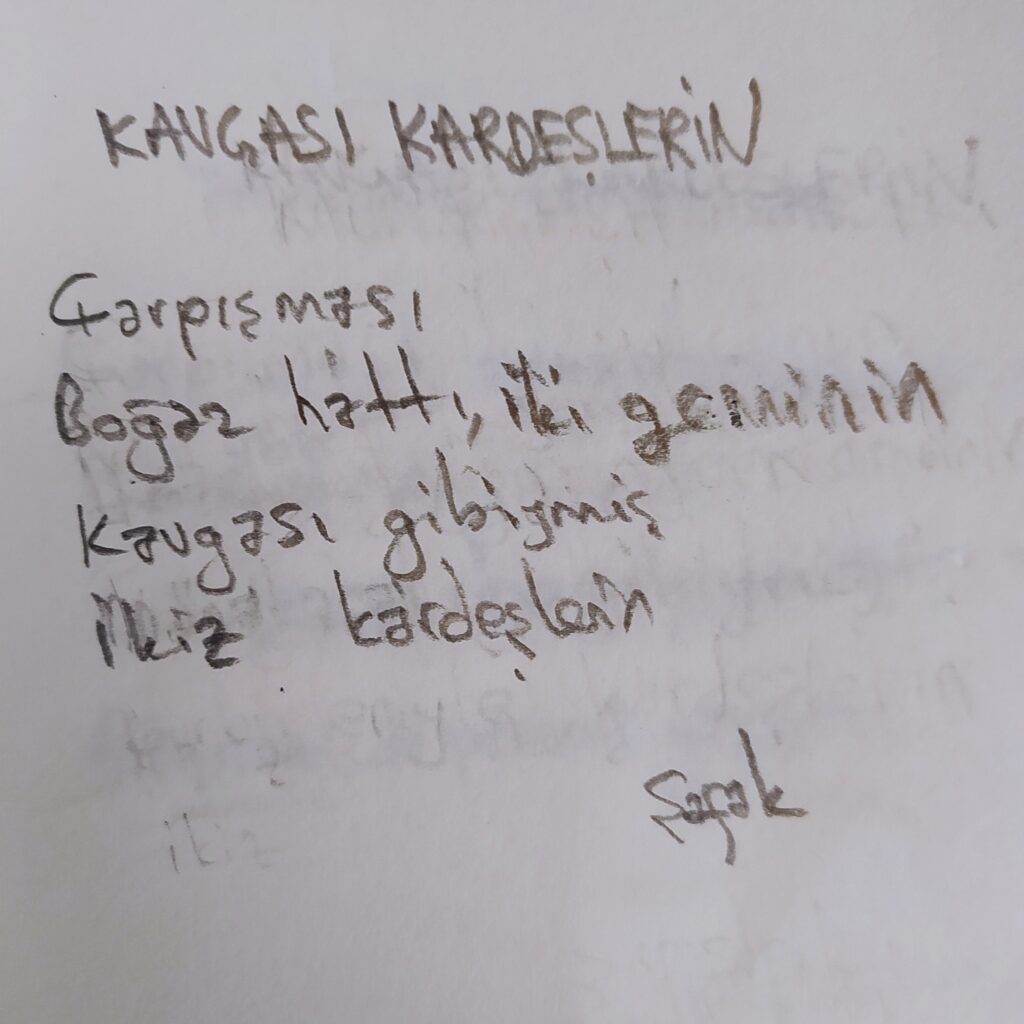 KAVGASI KARDEŞLERİN
Çarpışması
Boğaz hattı, iki geminin
Kavgası gibiymiş
İkiz kardeşlerin
Saçak